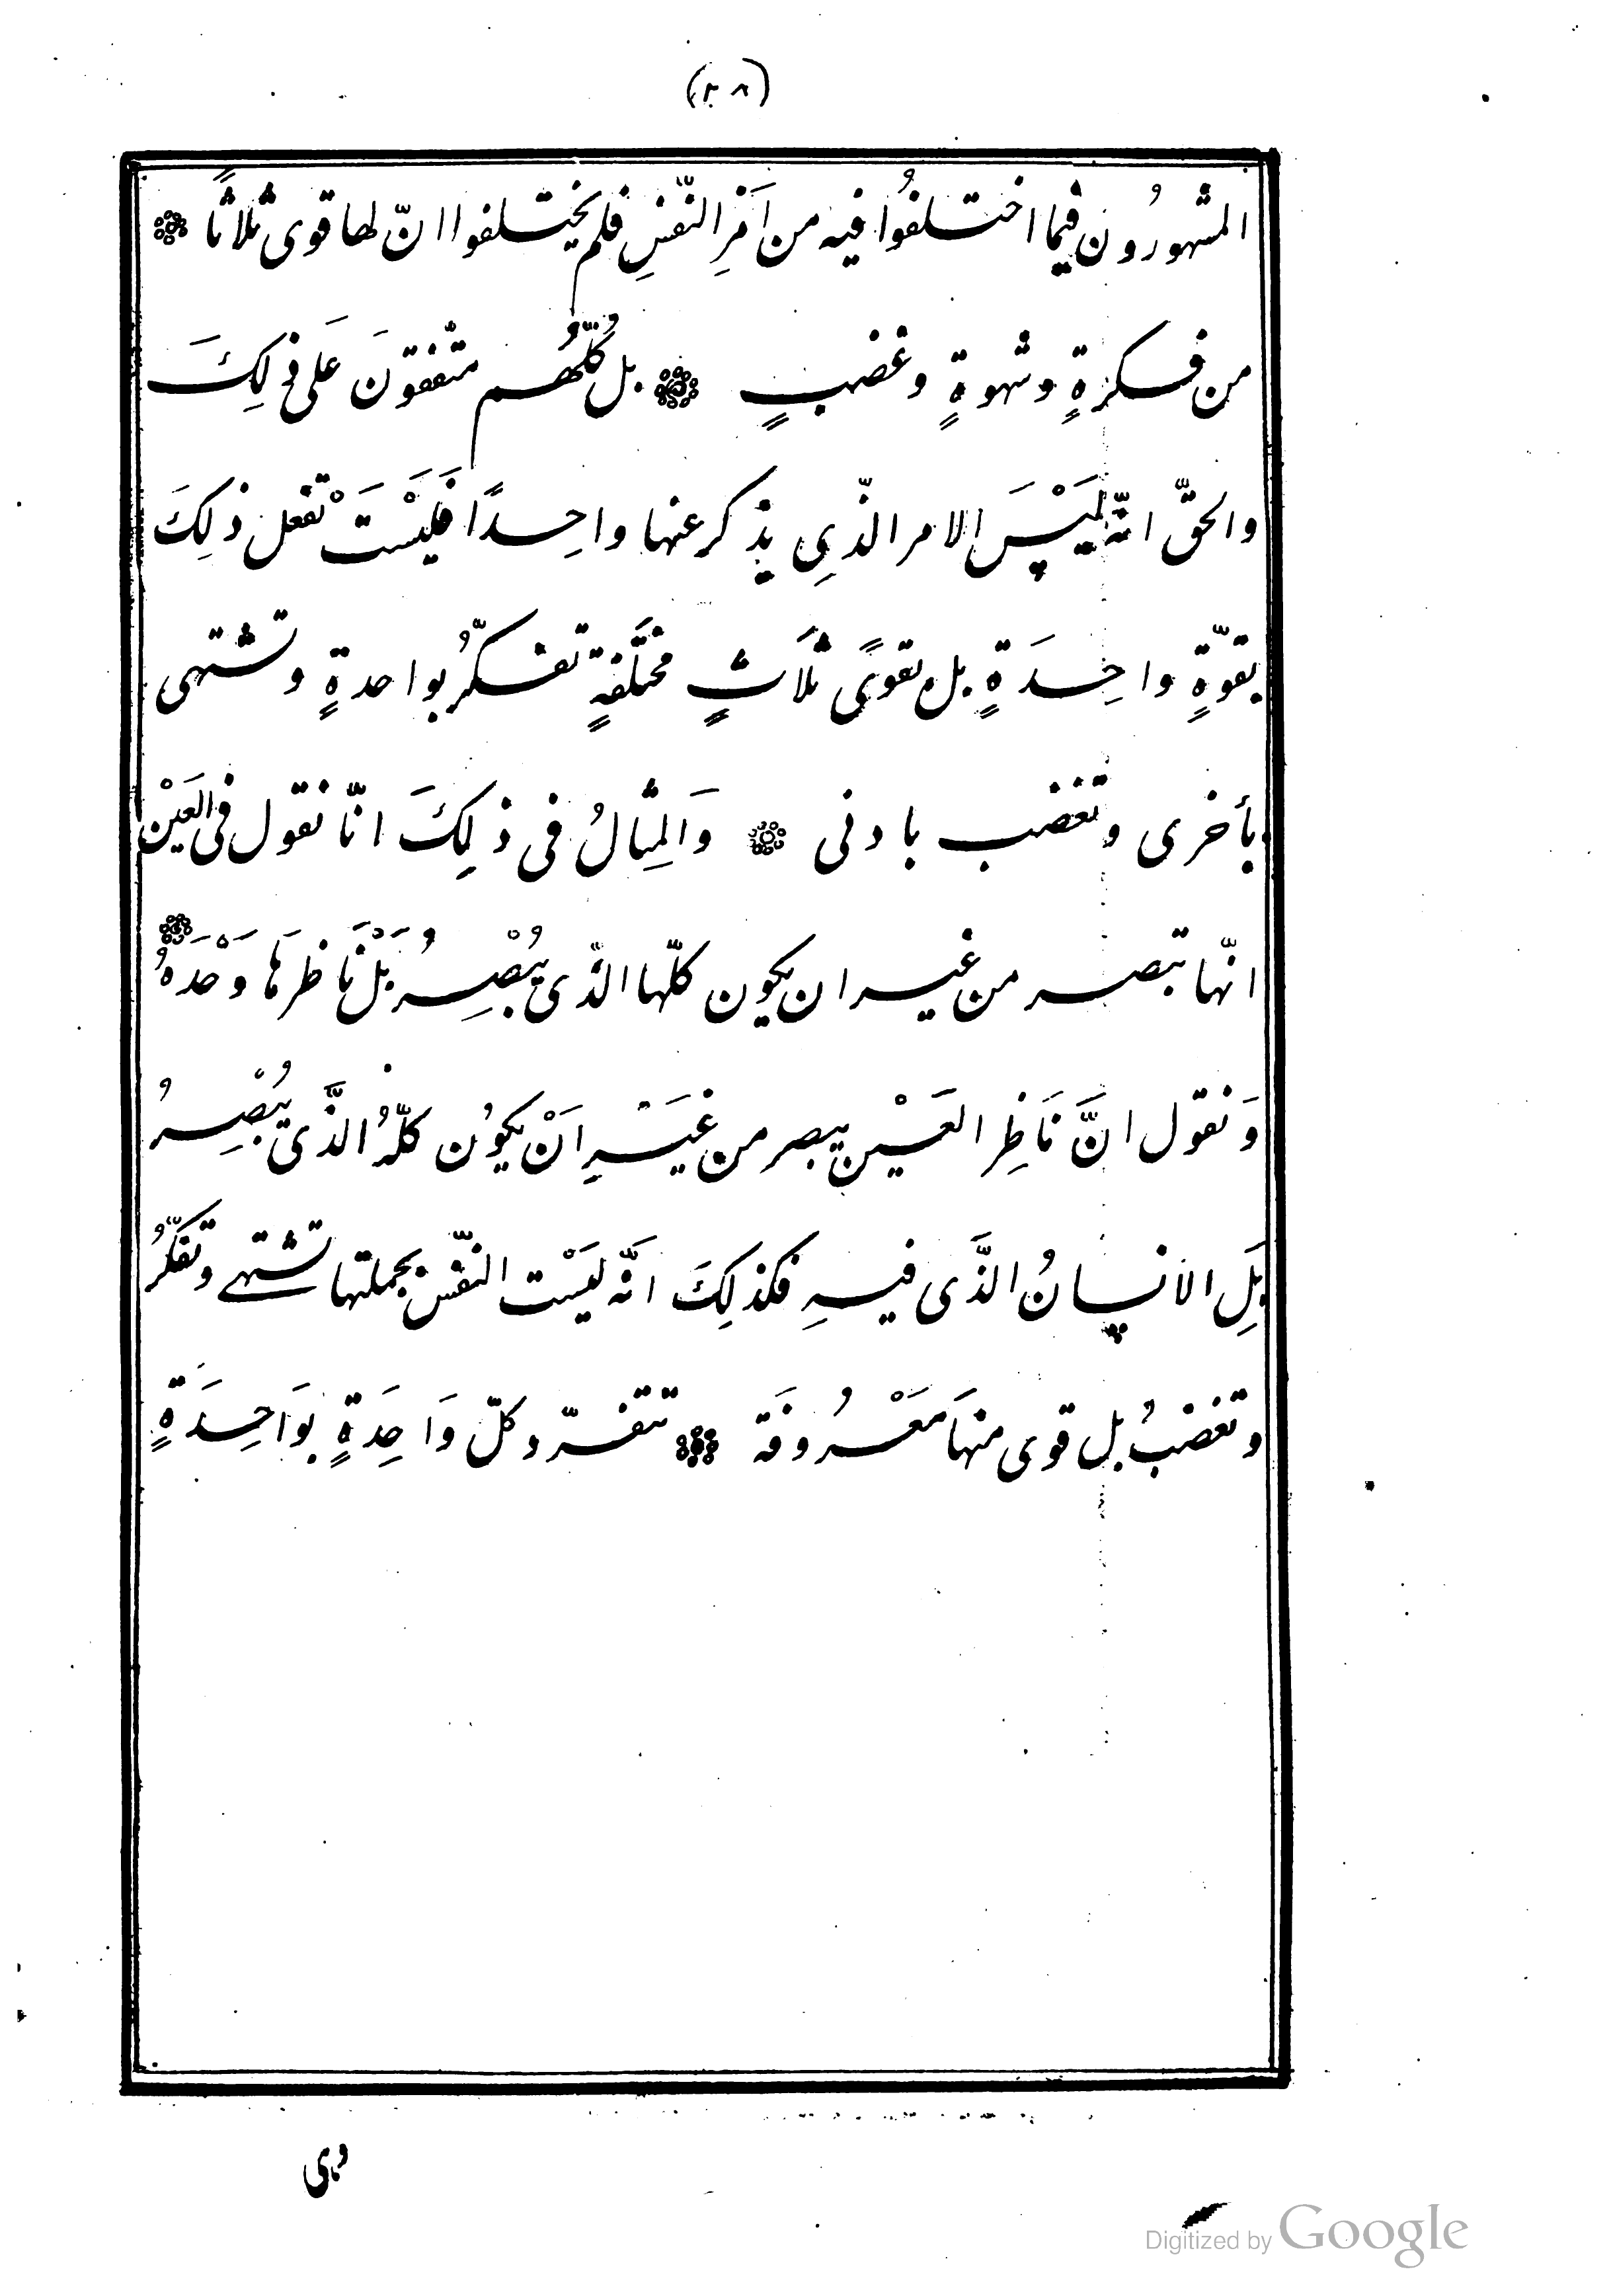 (٢٨)
المشهورُون فيما اختلفُوا فيه من اَمْرِ النّفسِ فلم يختلفوا انّ لها قوى ثلاثًا
من فكرةٍ وشهوةٍ وغضبٍ بل كلّهُم متّفقونَ عَلى ذلِكَ
والحقّ انّه لَيْسَ الامر الذّي يذكر عنها واحِدًا فليَسْتَ تفعل ذلِكَ
بقوّةٍ واحِدَةٍ بل بقوًى ثلاَثٍ مختَلفةٍ تفكّرُ بواحدةٍ وتشتهى
بأخرى وتغضب بادنى وَالمِثالُ فى ذلِكَ انّا نقول فى العَيْن
انّها تبصر من غير ان يكون كلّها الذّى يُبْصِرُ بَلْ نَاظرهَا وَحْدَهُ
وَنقول انَّ نَاظِر العَيْن يبصر من غَيْرِ اَنْ يكوُن كلّهُ الذَّى يُبْصِرُ
بَلِ الانسانُ الذَّى فيهِ فكذلِكَ اَنّه ليَسْت النفّس بجملتها تشتهى وتفكّرُ
وتغضبُ بل قوى منهَا مَعْرُوفَة تتفرّد كلّ وَاحِدَةٍ بوَاحِدَةٍ
وهى
Digitized by Google